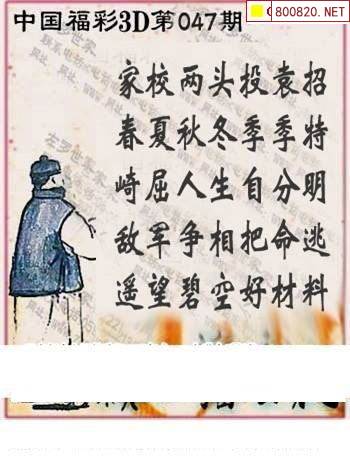 中国福彩3D第047期
800820.NET
家校两头投袁招
春夏秋冬季季特
崎屈人生自分明
敌军争相把命逃
遥望碧空好材料